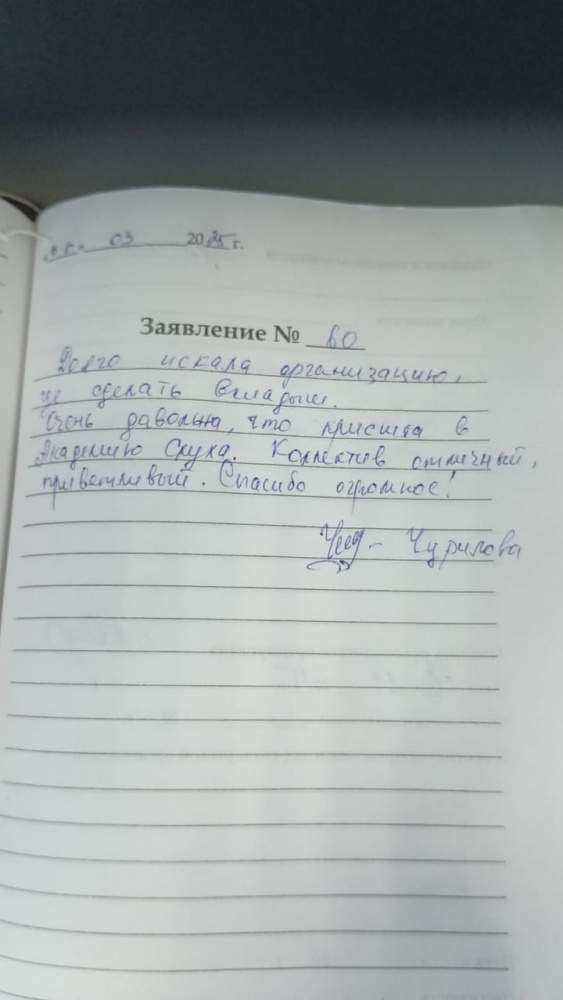 03 2025 г.
Заявление № 60
Долго искала организацию,
где сделать вкладыши.
Очень давольна, что пришла в
Академию Слуха. Коллектив отличный,
приветливый. Спасибо огромное!
Чурилова